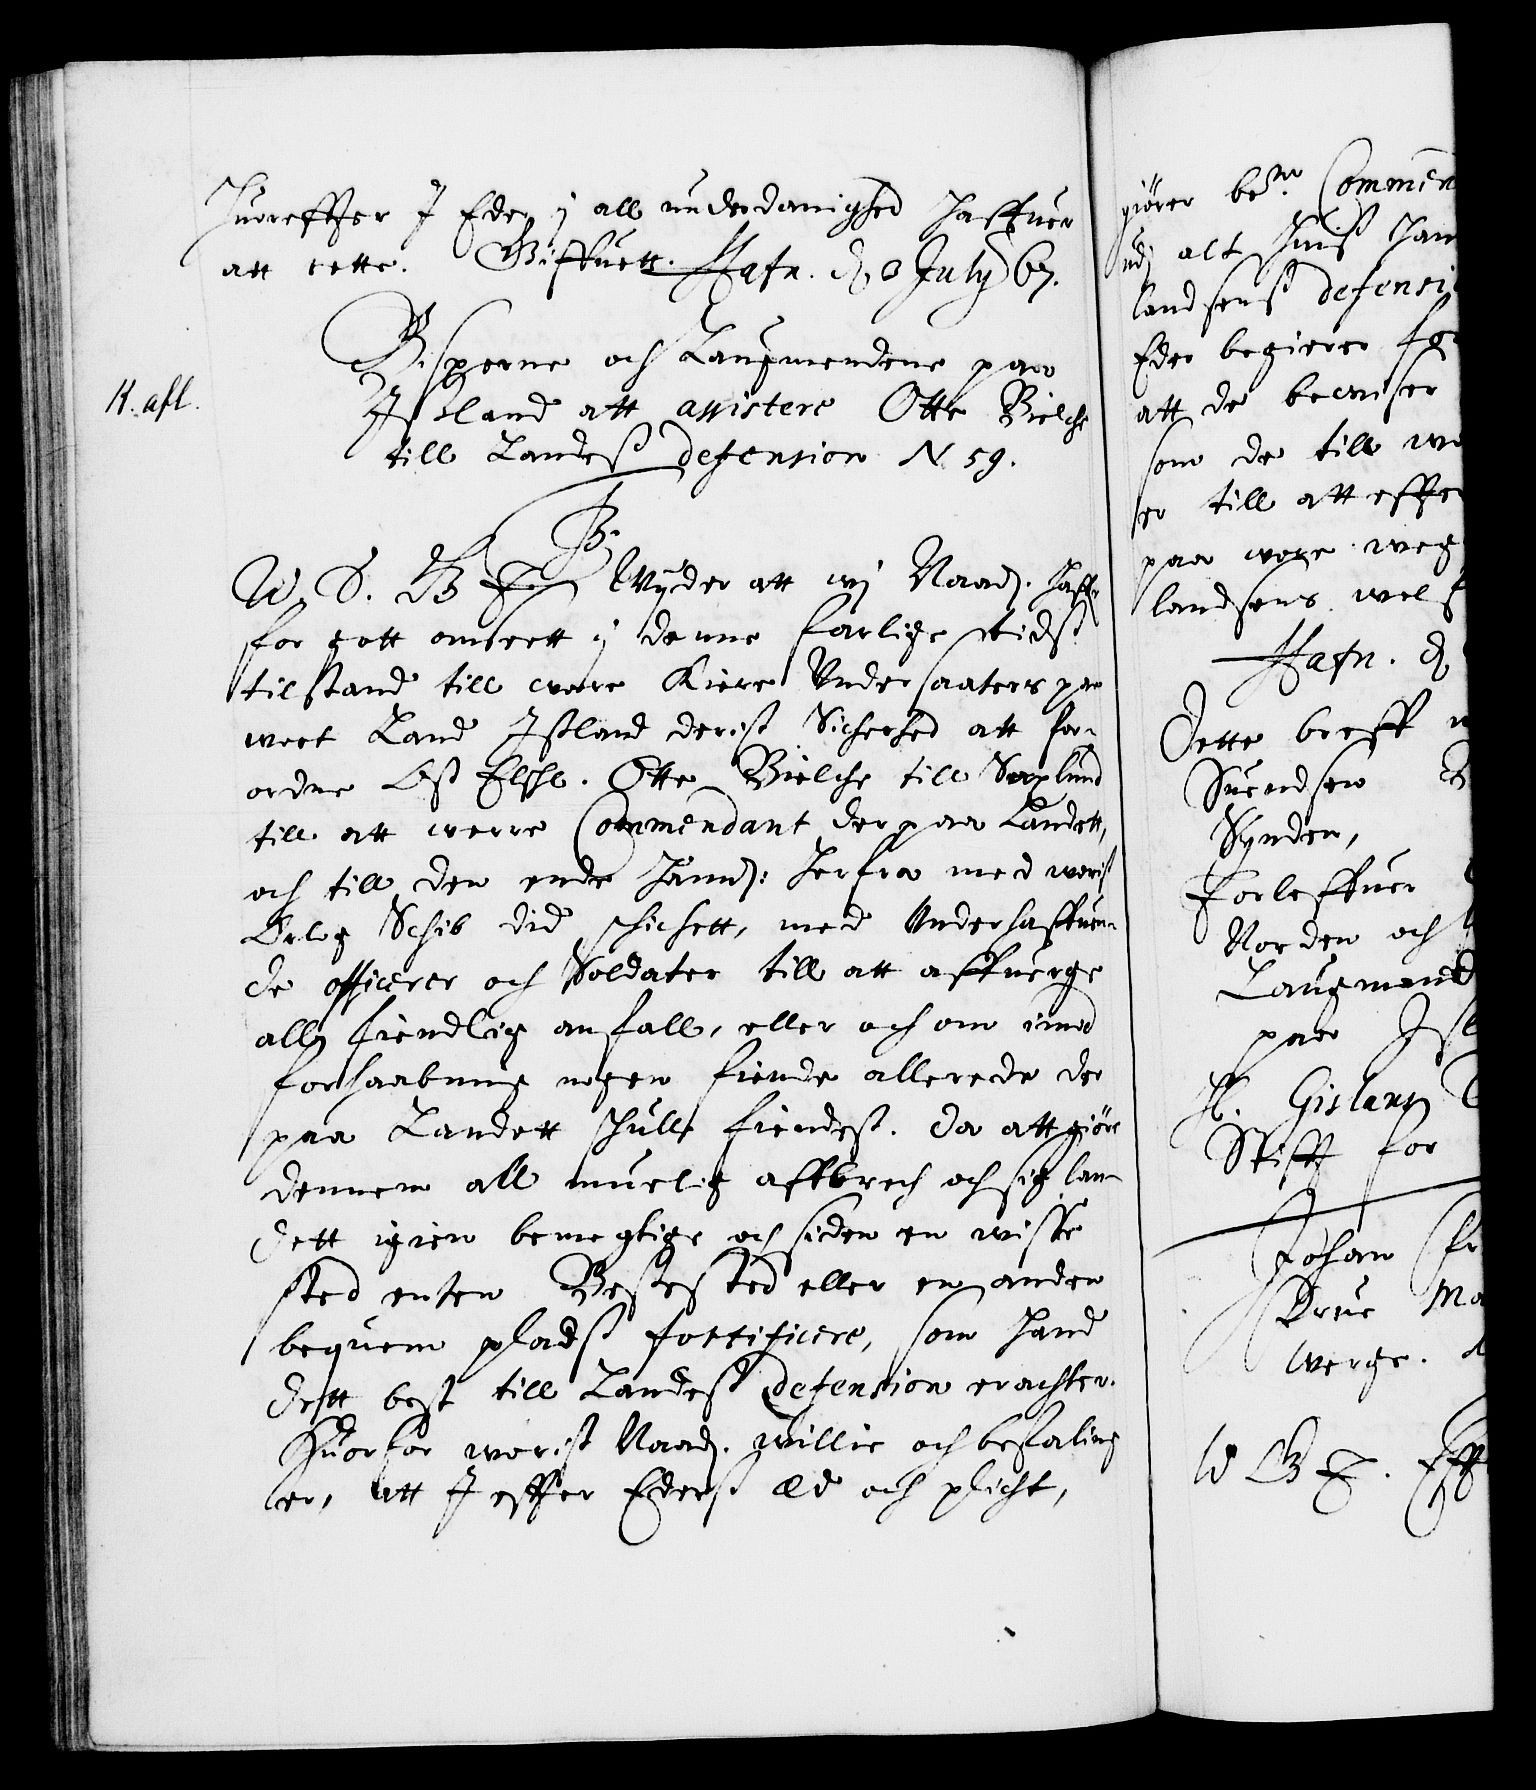 Huoreffter I Eder i all underdanighed haffuer
att rette. Giffuett. Hafn. d. 3 July 67.
Bisperne och Laugmendene paa
K. afl.
Ißland att assistere Otte Bielche
till Landeß defension N. 59.
W. S. G T. Wyder att wi Naad. haffr
for gott anseett i denne farlige tidß
tilstand till wore Kiere Undersaaters paa
wort Land Ißland deriß Sicherhed att for-
ordne Oß Elschl. Otte Bielche till
till att werre Commendant der paa Landett,
och till den ende hannd: herfra med woriß
Orlog Schib did schichett, med Underhaffuen-
de officerer och Soldater till att affuerge
all fiendlig anfall, eller och om imod
forhaabning nogen fiende allerede der
paa Landett schulle findeß. da att giøre
dennem all muelig affbrech och sig lan-
dett igien bemegtige och siden en wisse
sted enten Bessested eller en anden
bequem pladß fortificere, som hand
dett best till Landeß defension erachter.
Huorfor woriß Naad. willie och befaling
er, att I effter Ederß æd och plicht,
giører bete. Commen
udj alt huiß han
landsenß defensi
Eder begierer for
att de beuiser
som de till we
er till att effter
paa wore weg
landsens wels
Hafn. d.
Dette breff
Suendsen
Synden,
Torleffuer
Norden och
Laugmend
paa Isl
H. Gislaus
Stifft for
Johan fr
Frue Ma
werge.
W G T. Eff